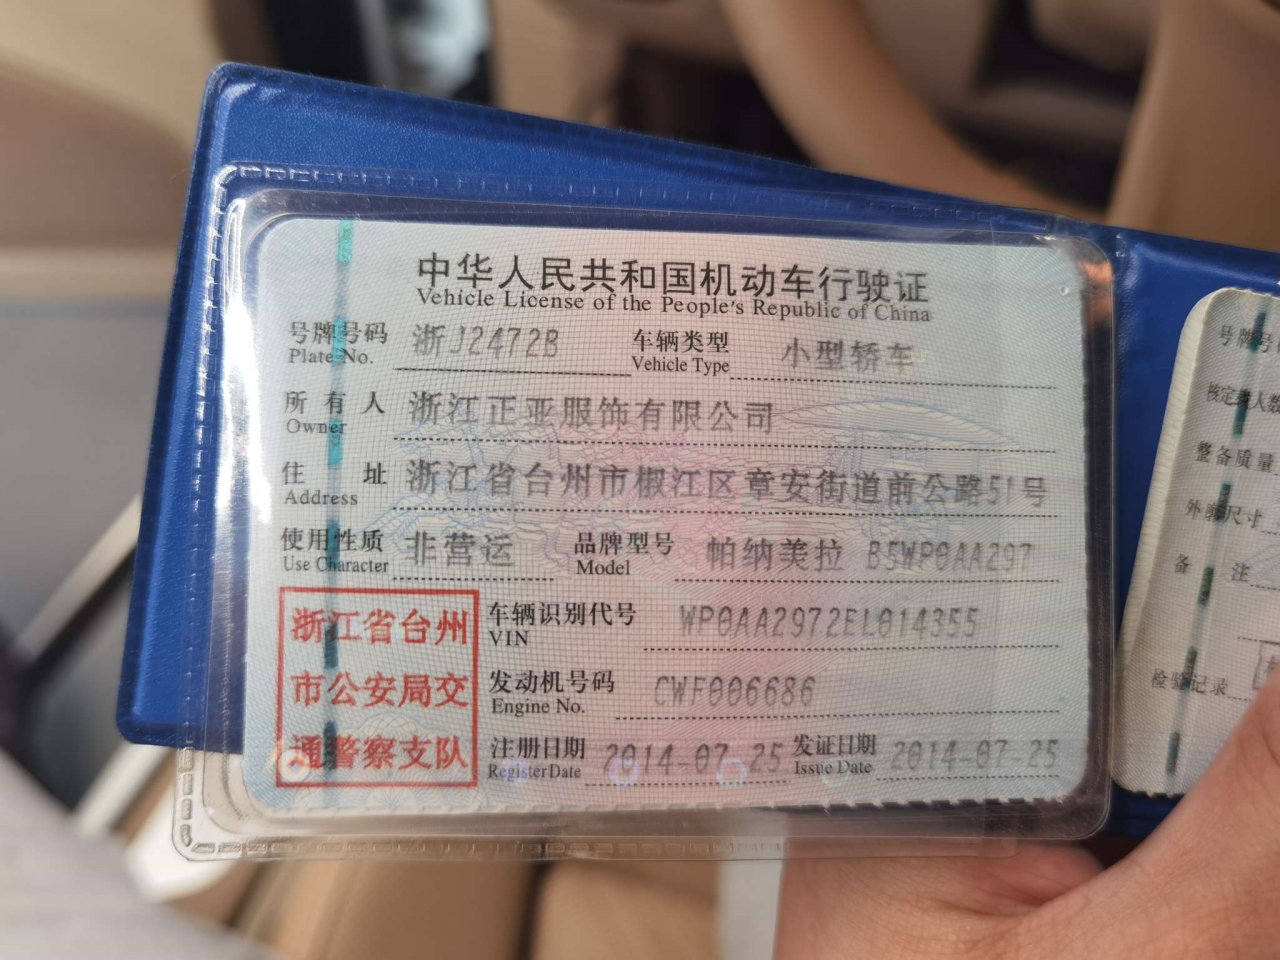 中华人民共和国机动车行驶证
Vehicle License of the People's Republic of China
号牌号码 浙J2472B 车辆类型 小型轿车
Plate No. Vehicle Type
所有人 浙江正亚服饰有限公司
Owner
住址 浙江省台州市椒江区章安街道前公路51号
Address
使用性质 非营运 品牌型号 帕纳美拉 BSWP0AA297
Use Character Model
浙江省台州
市公安局交
通警察支队
车辆识别代号 WP0AA2972EL014355
VIN
发动机号码 CWF006686
Engine No.
注册日期 2014-07-25 发证日期 2014-07-25
Register Date Issue Date
号牌号
核定载人数
整备质量
外廓尺寸
备注
检验记录